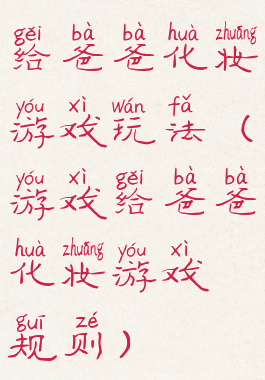 gěi bà bà huà zhuāng
给爸爸化妆
yóu xì wán fǎ
游戏玩法（
yóu xì gěi bà bà
游戏给爸爸
huà zhuāng yóu xì
化妆游戏
guī zé
规则）